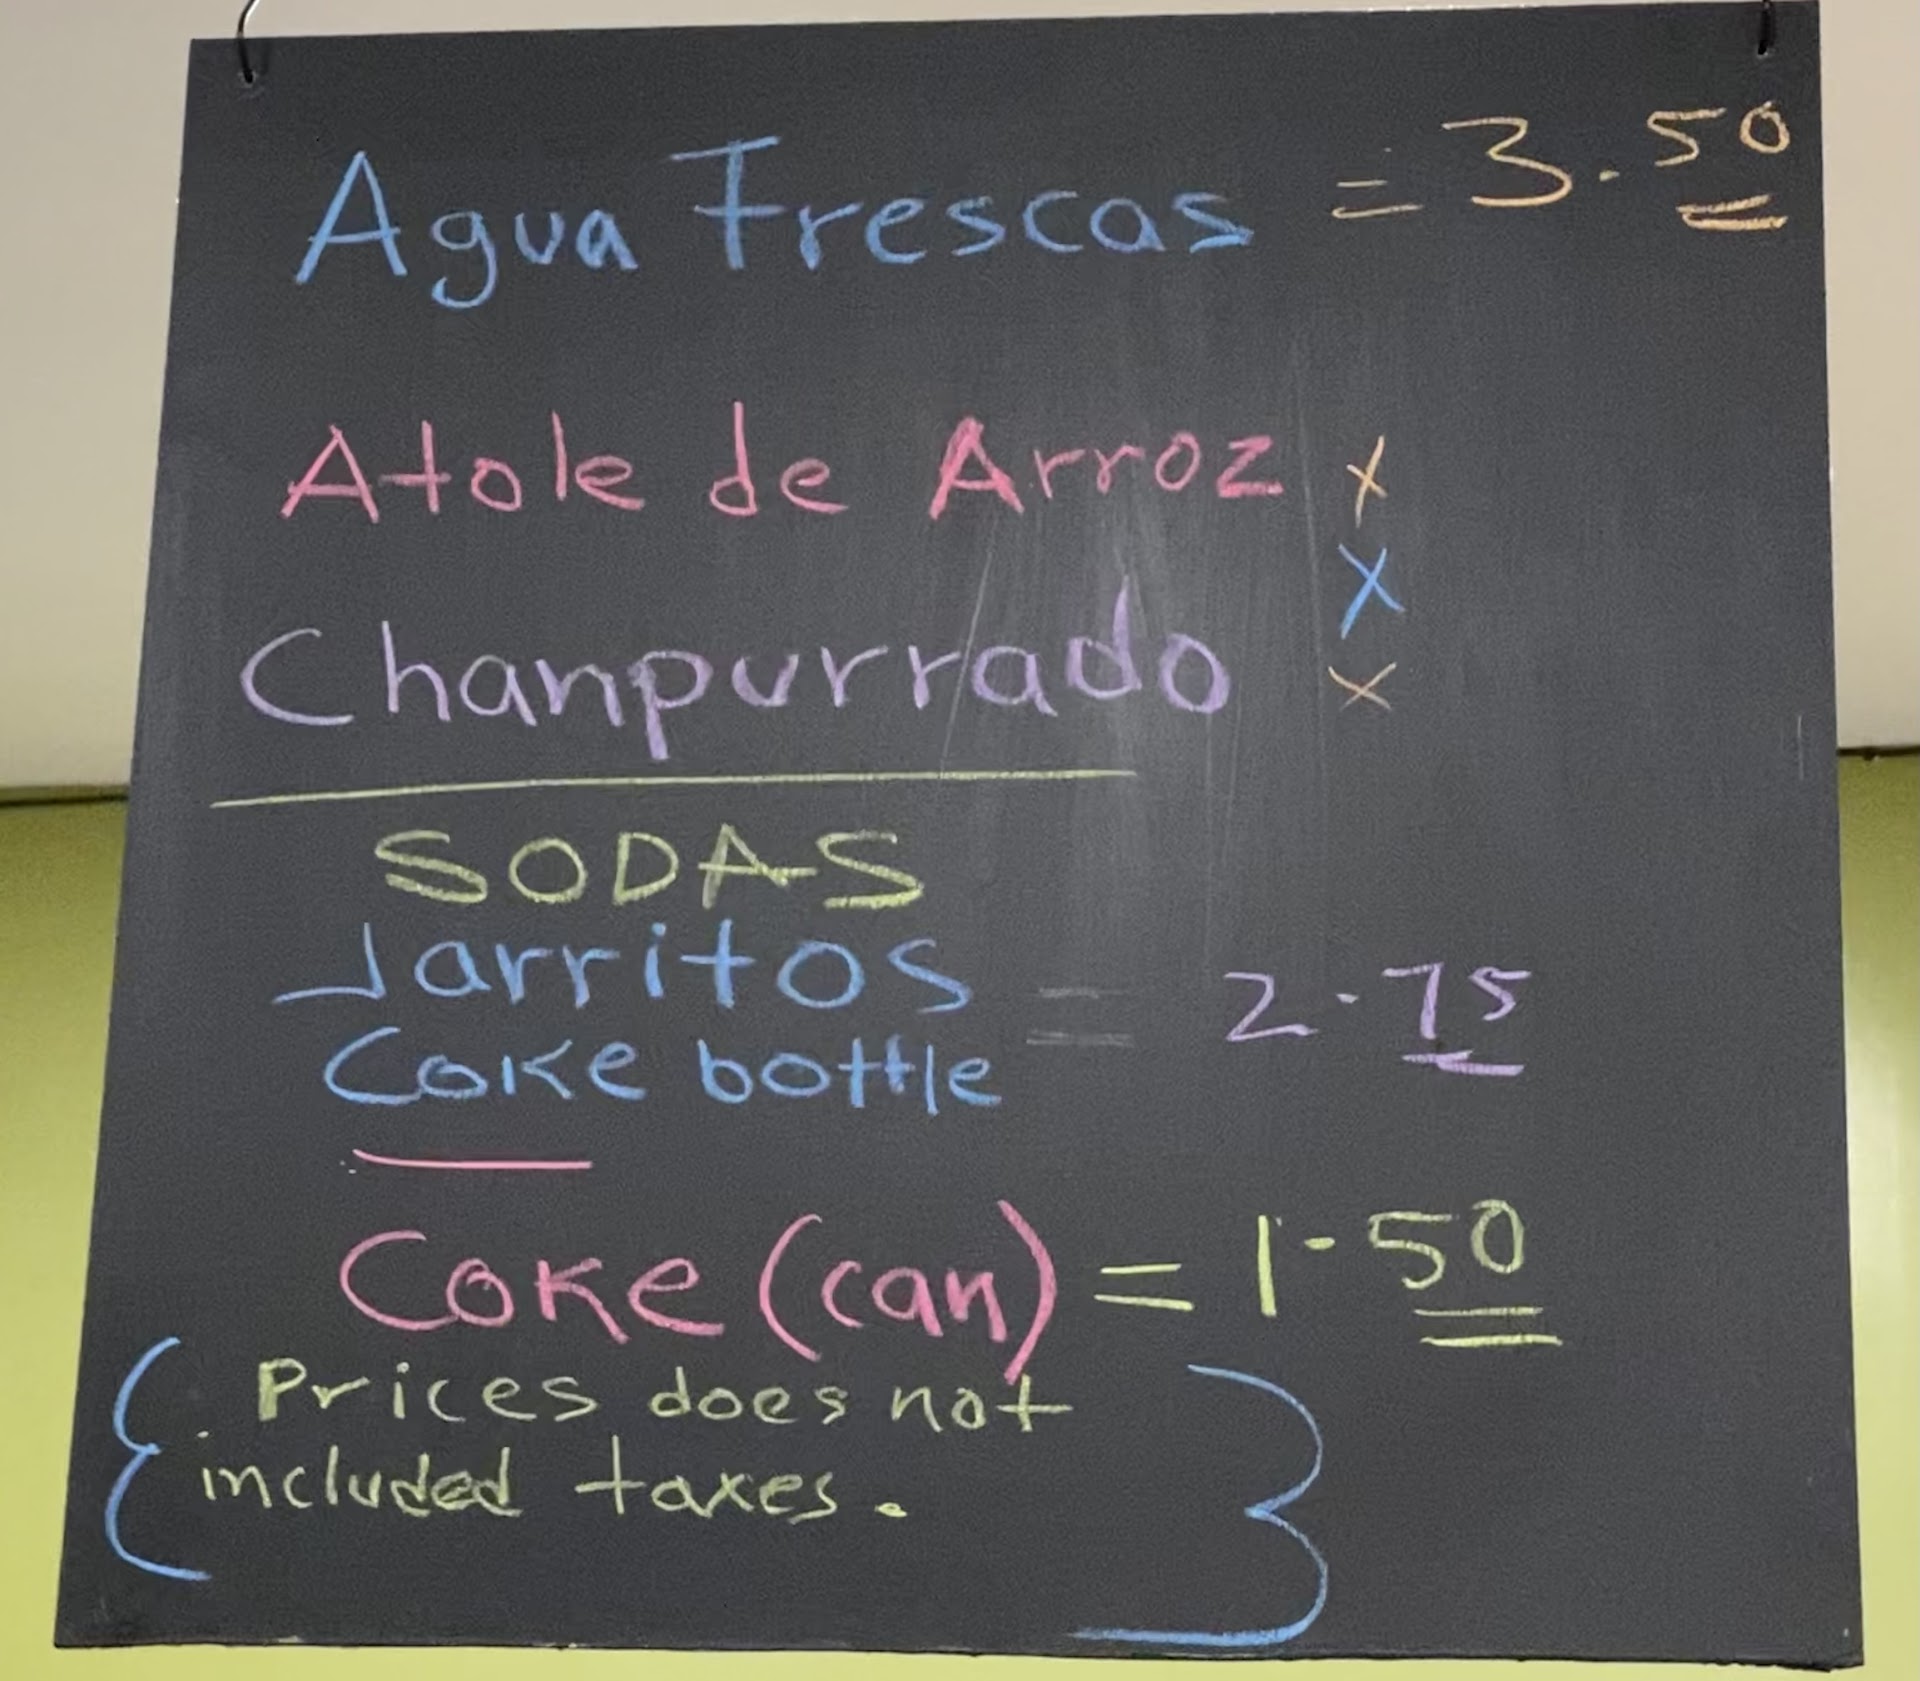 Agua Frescas = 3.50
Atole de Arroz x
x
Chanpurrado x
SODAS
Jarritos
= 2.75
Coke bottle
Coke (can) = 1.50
{ Prices does not
included taxes. }